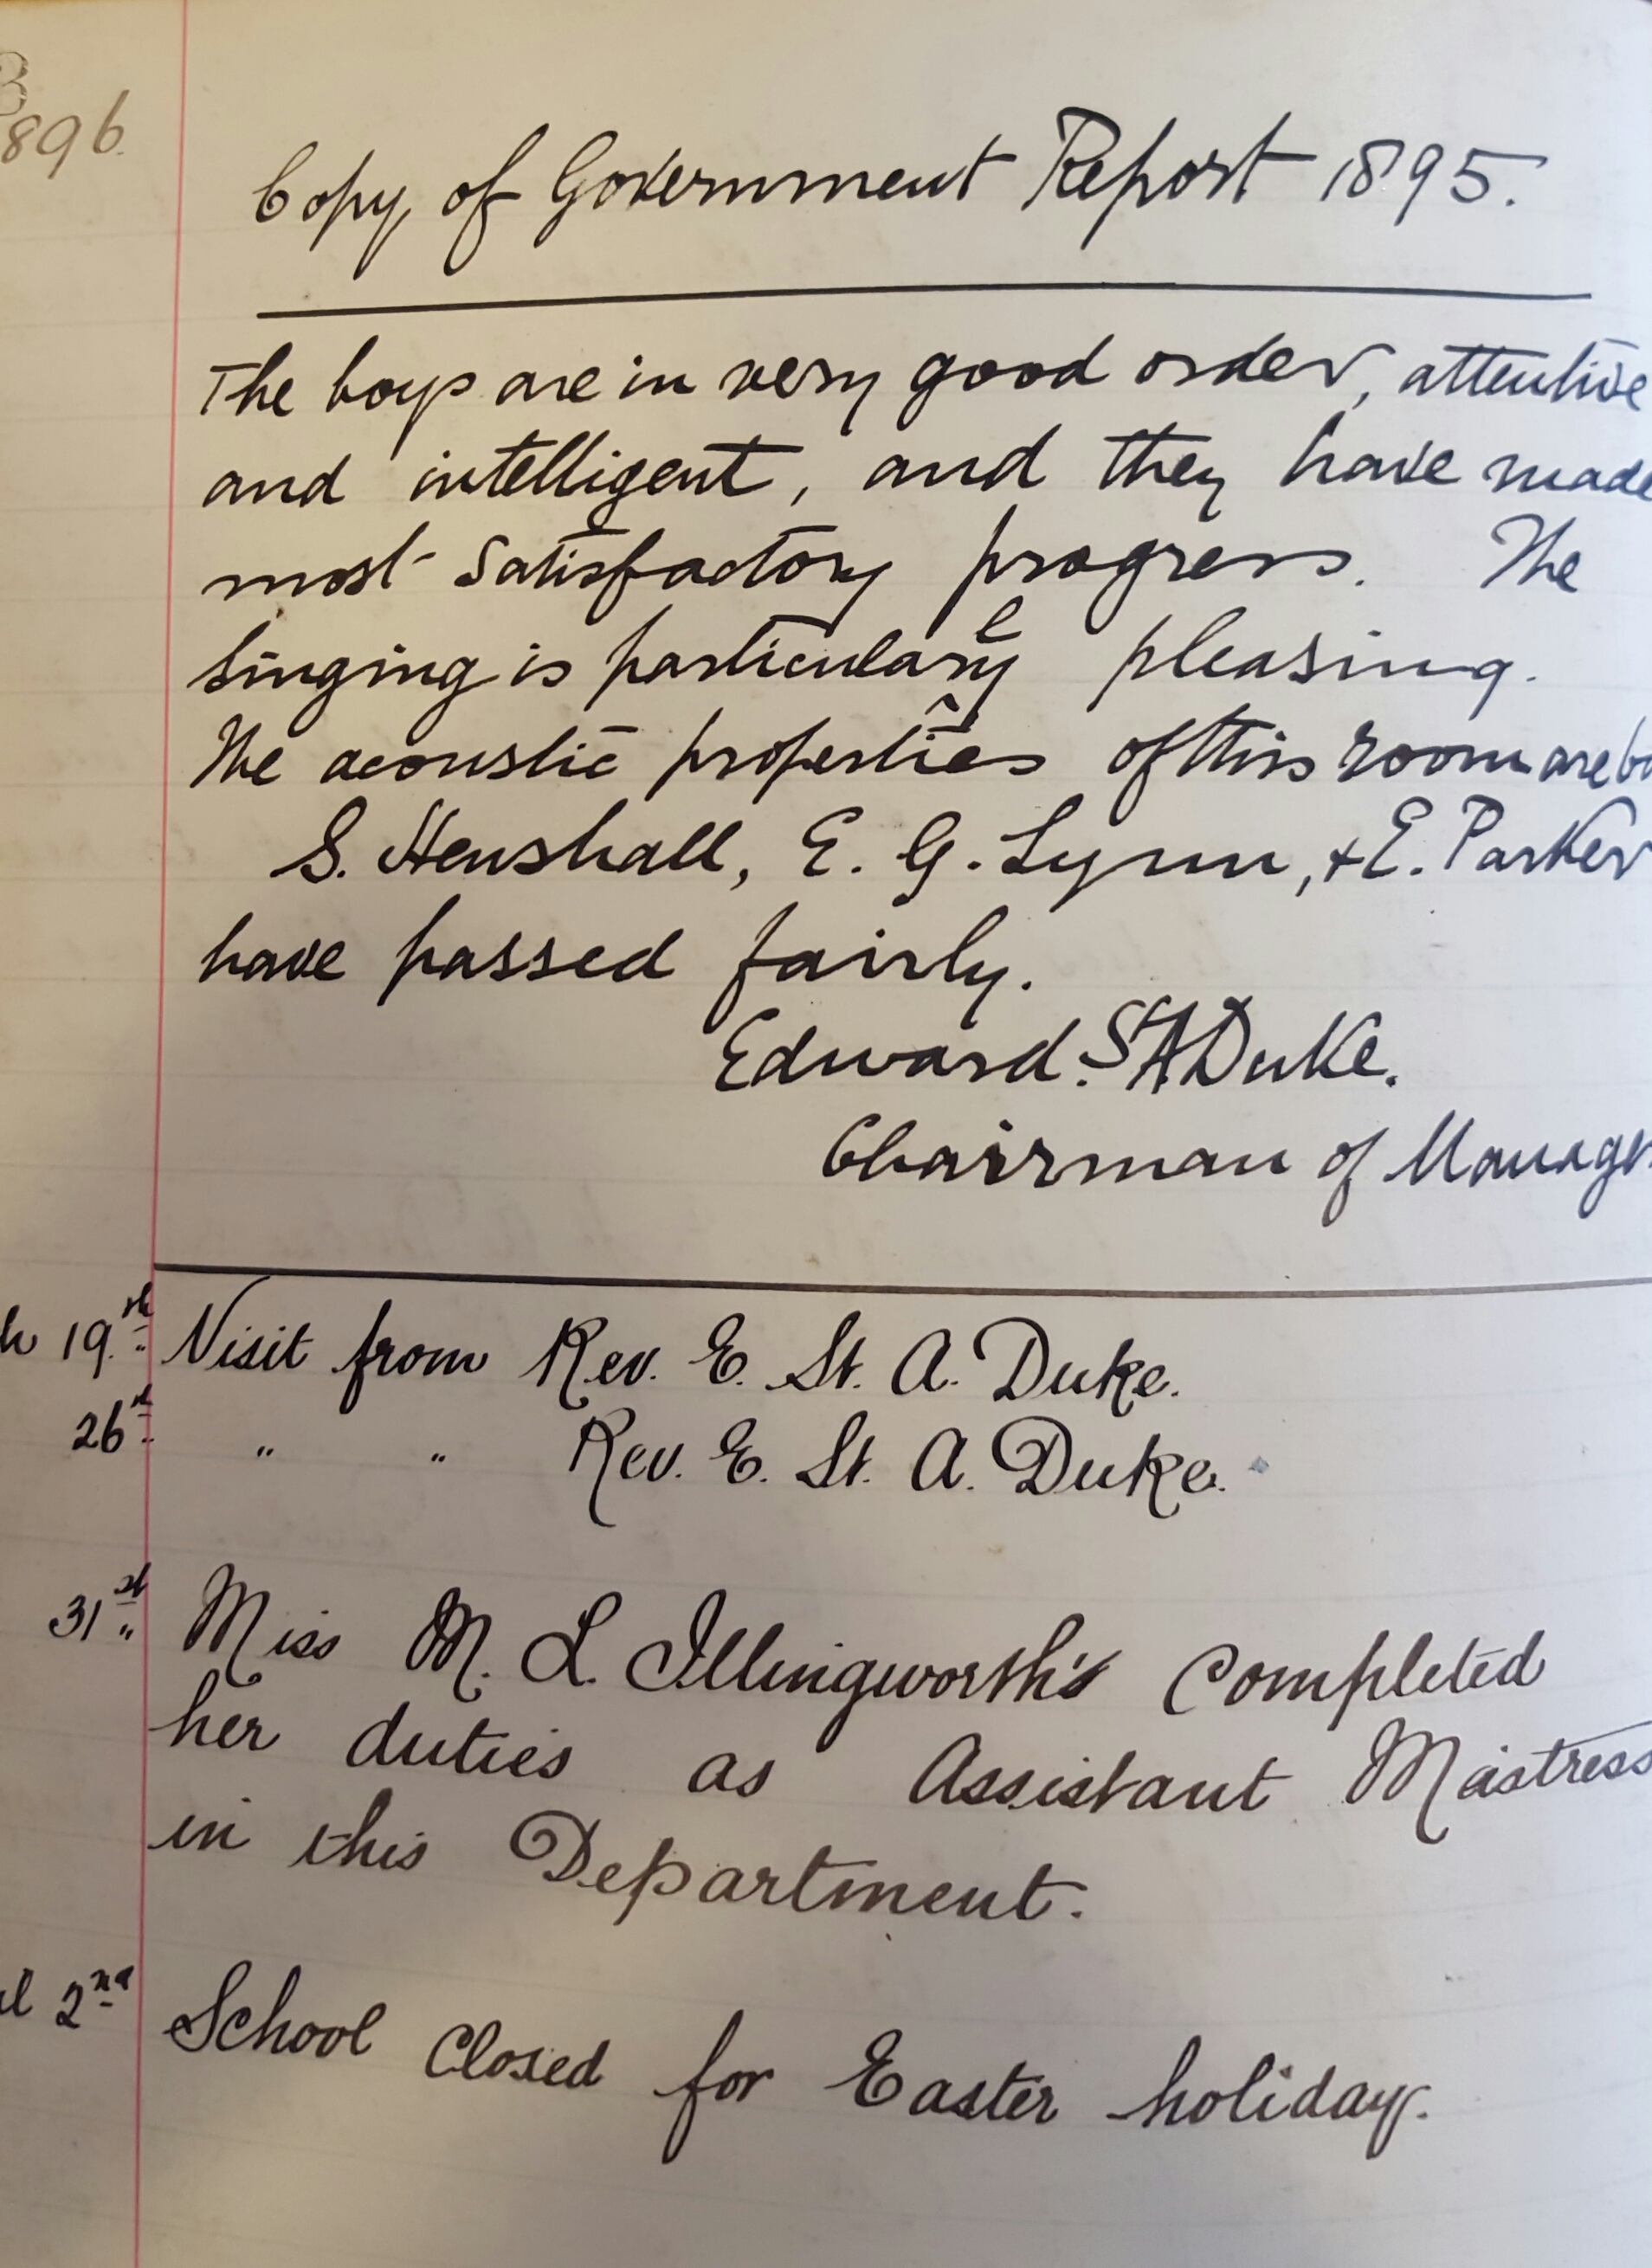 896.
Copy of Government Report 1895.
The boys are in very good order, attentive
and intelligent, and they have made
most satisfactory progress. The
singing is particularly pleasing.
The acoustic properties of this room are
S. Henshall, E. G. Lynn, + E. Parker
have passed fairly.
Edward. St A Duke.
Chairman of Manage
h 19th Visit from Rev. E. St. A. Duke.
26th " " Rev. E. St. A. Duke.
31st Miss M. L. Illingworth's completed
her duties as Assistant Mistress
in this Department.
il 2nd School Closed for Easter holiday.